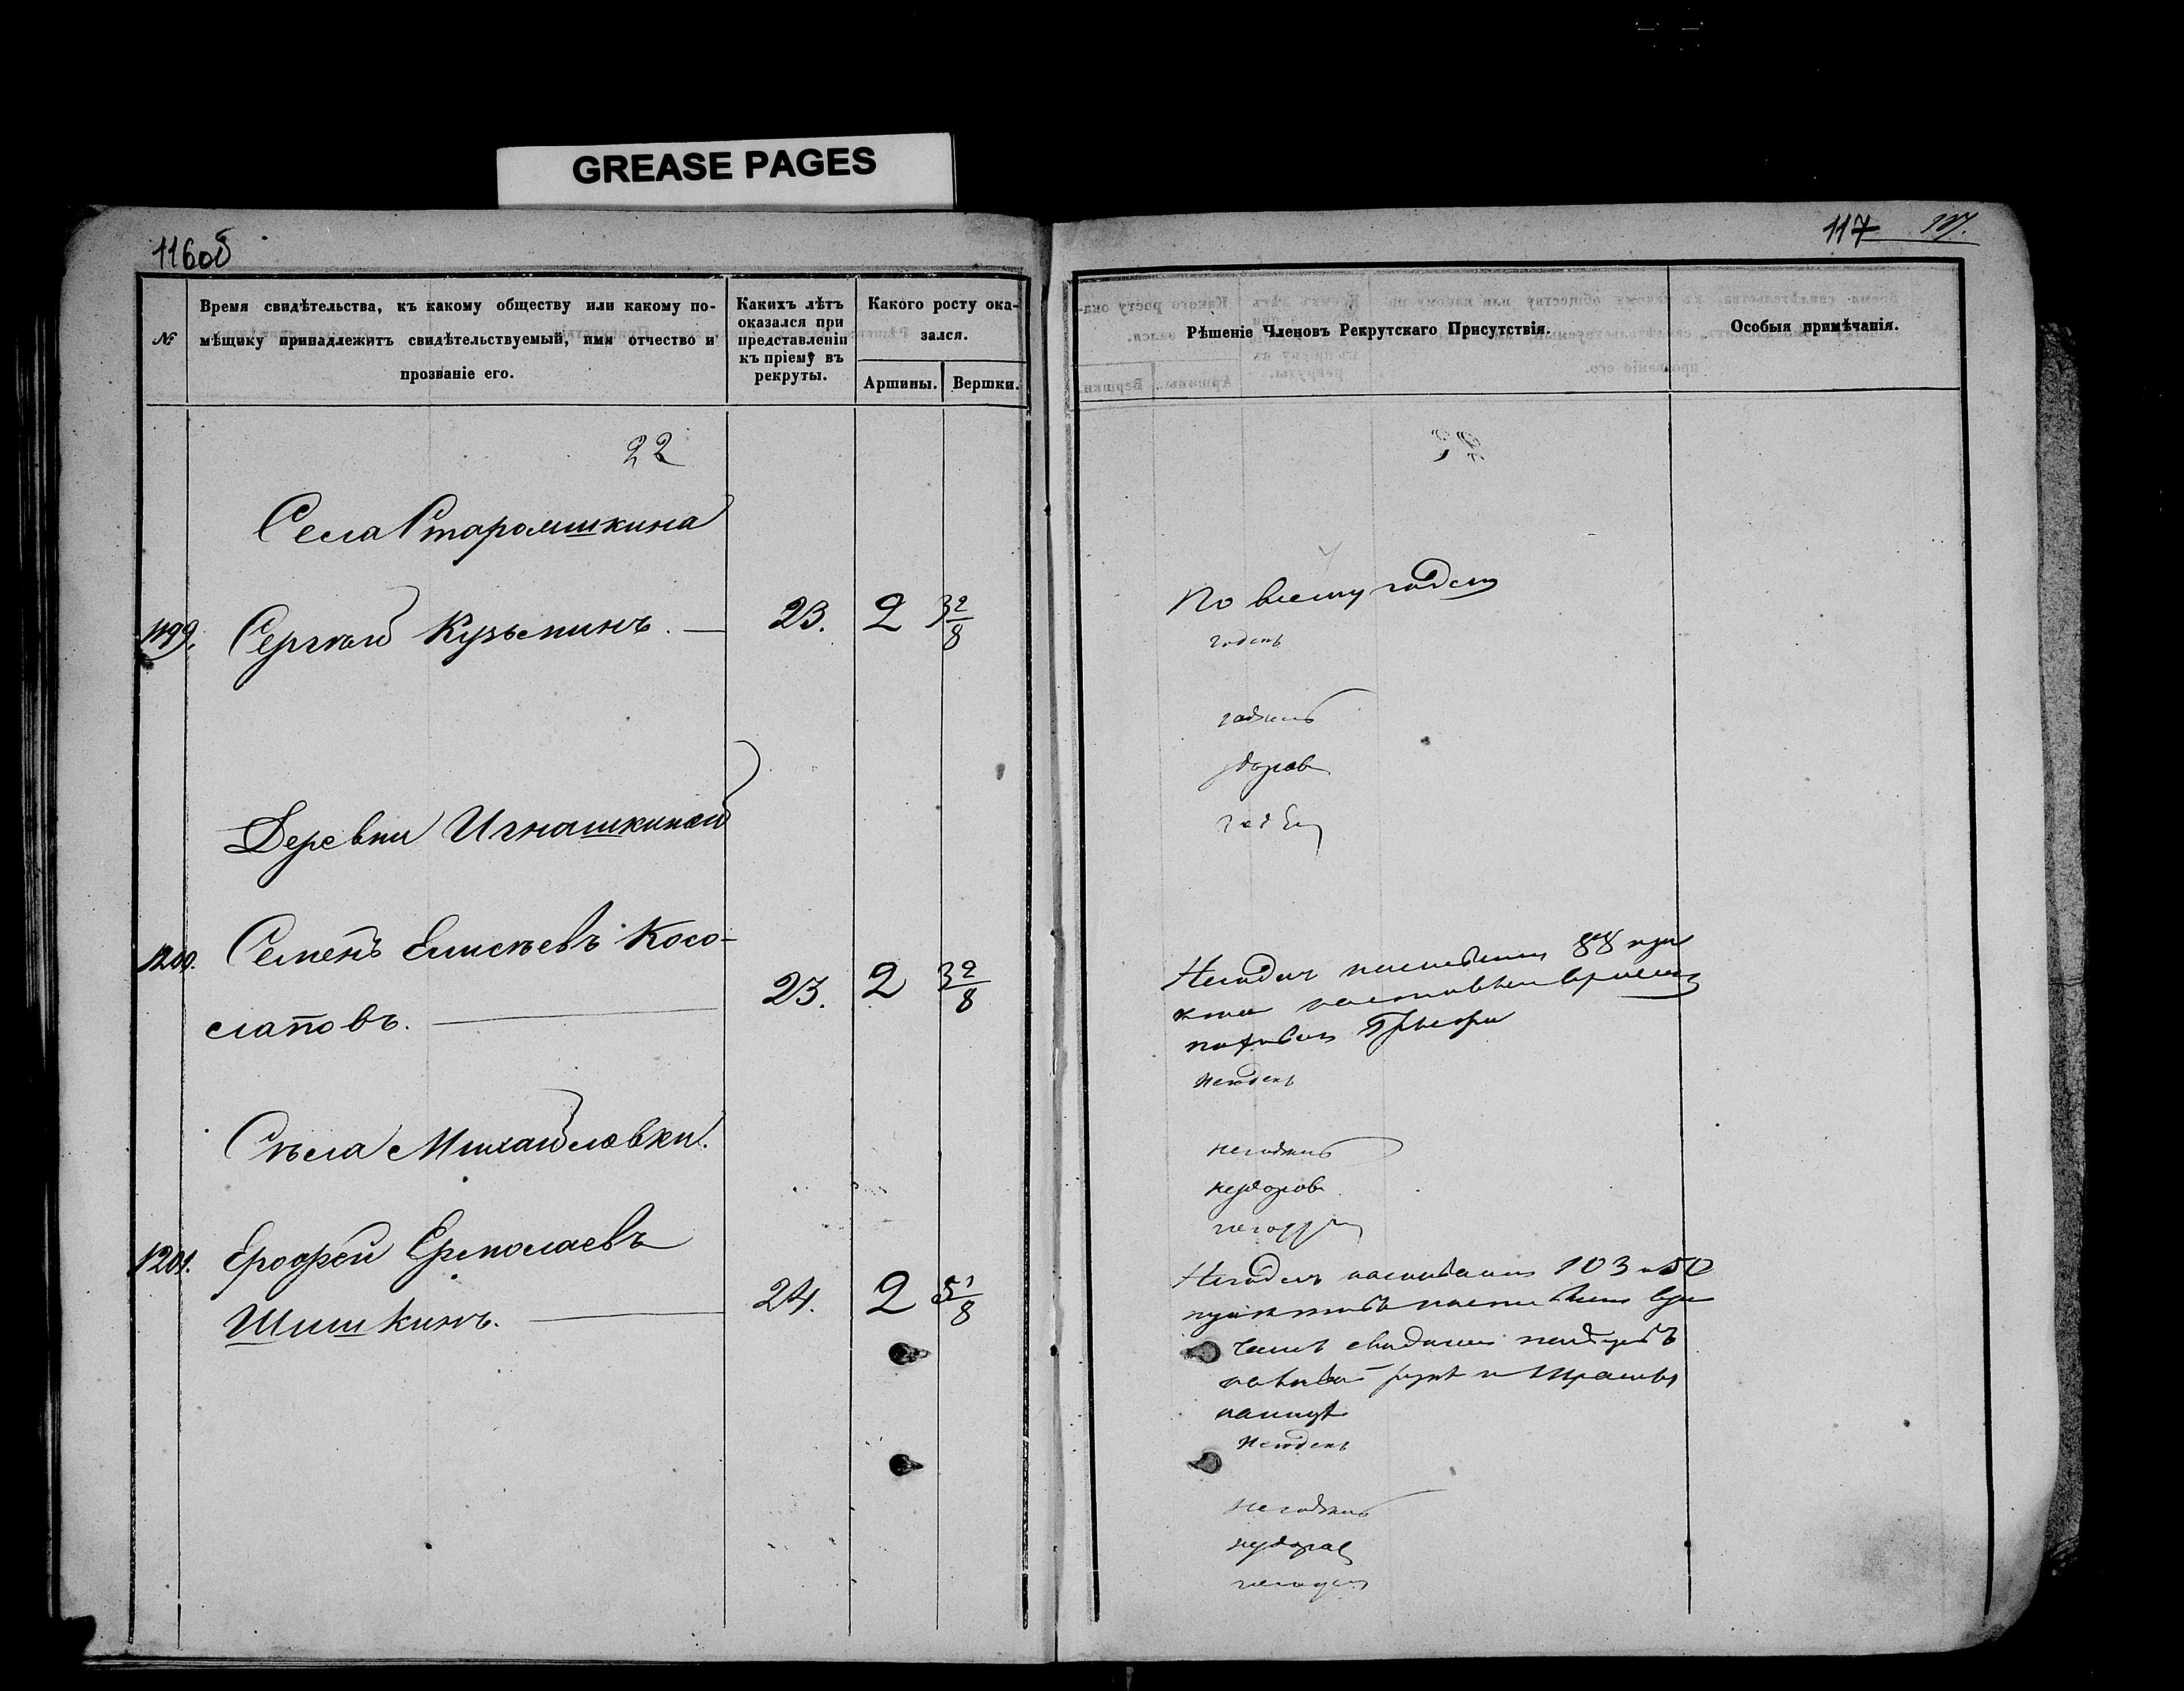 GREASE PAGES
116об
№
Время свидѣтельства, къ какому обществу или какому по-
мѣщику принадлежитъ свидѣтельствуемый, имя отчество и
прозваніе его.
Какихъ лѣтъ
оказался при
представленіи
къ пріему въ
рекруты.
Какого росту ока-
зался.
Аршины. Вершки.
22
Села Старомшкина
1199. Сергѣй Кузьминъ. 23. 2 3 2/8
Деревни Игнашкиной
1200. Семенъ Елисѣевъ Косо-
лаповъ. 23. 2 3 2/8
Съела Михайловки.
1201. Ерофей Ермолаевъ
Шишкинъ. 24. 2 5 1/8
117
Рѣшеніе Членовъ Рекрутскаго Присутствія.
Особыя примѣчанія.
По всему годенъ
годенъ
годенъ
здоровъ
годенъ
Негоденъ 88
негоденъ
негоденъ
нездоровъ
негоденъ
Негоденъ 103 и 50
негоденъ
негоденъ
нездоровъ
негоденъ